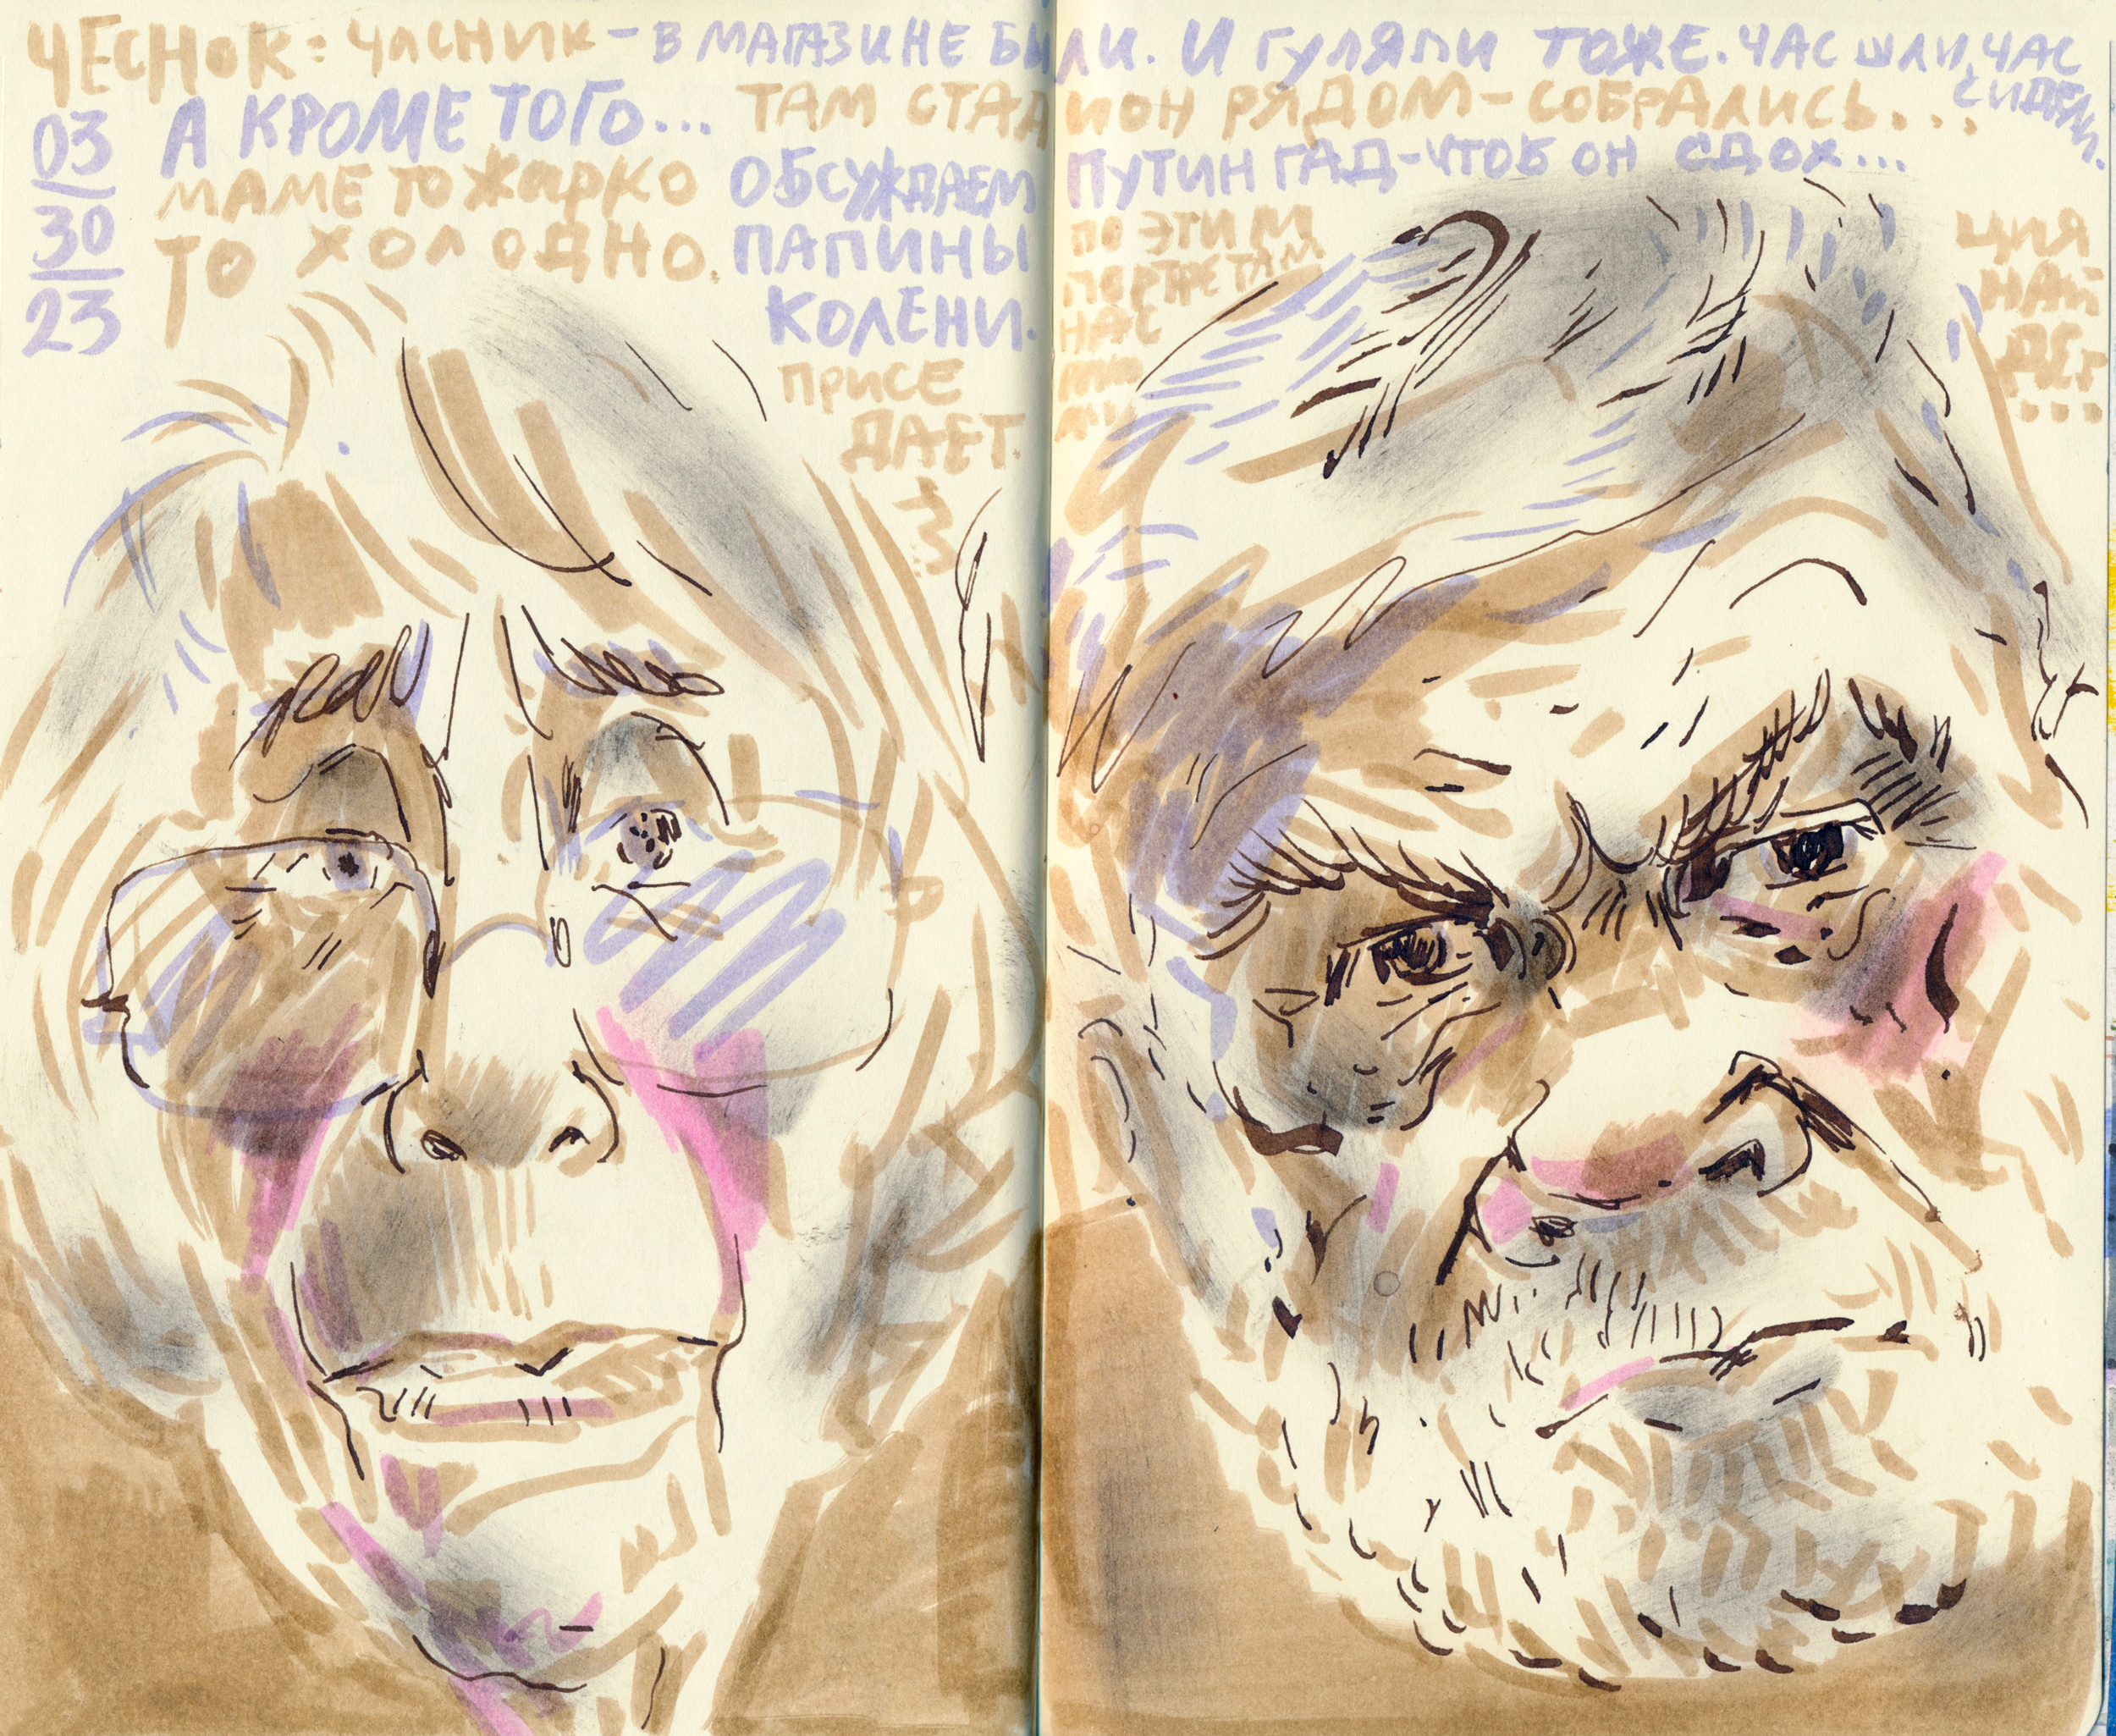 ЧЕСНОК: ЧАСНИК - В МАГАЗИНЕ БЫЛИ. И ГУЛЯЛИ ТОЖЕ. ЧАС ШЛИ, ЧАС
СИДЕЛИ.
03
30
23
А КРОМЕ ТОГО... ТАМ СТАДИОН РЯДОМ - СОБРАЛИСЬ...
МАМЕ ТО ЖАРКО
ТО ХОЛОДНО.
ОБСУЖДАЕМ
ПАПИНЫ
КОЛЕНИ.
ПРИСЕ
ДАЕТ.
ПУТИН ГАД-ЧТОБ ОН СДОХ...
ПО ЭТИМ
ПОРТРЕТАМ
НАС
ЦИЯ
НАЙ
ДЕТ
...